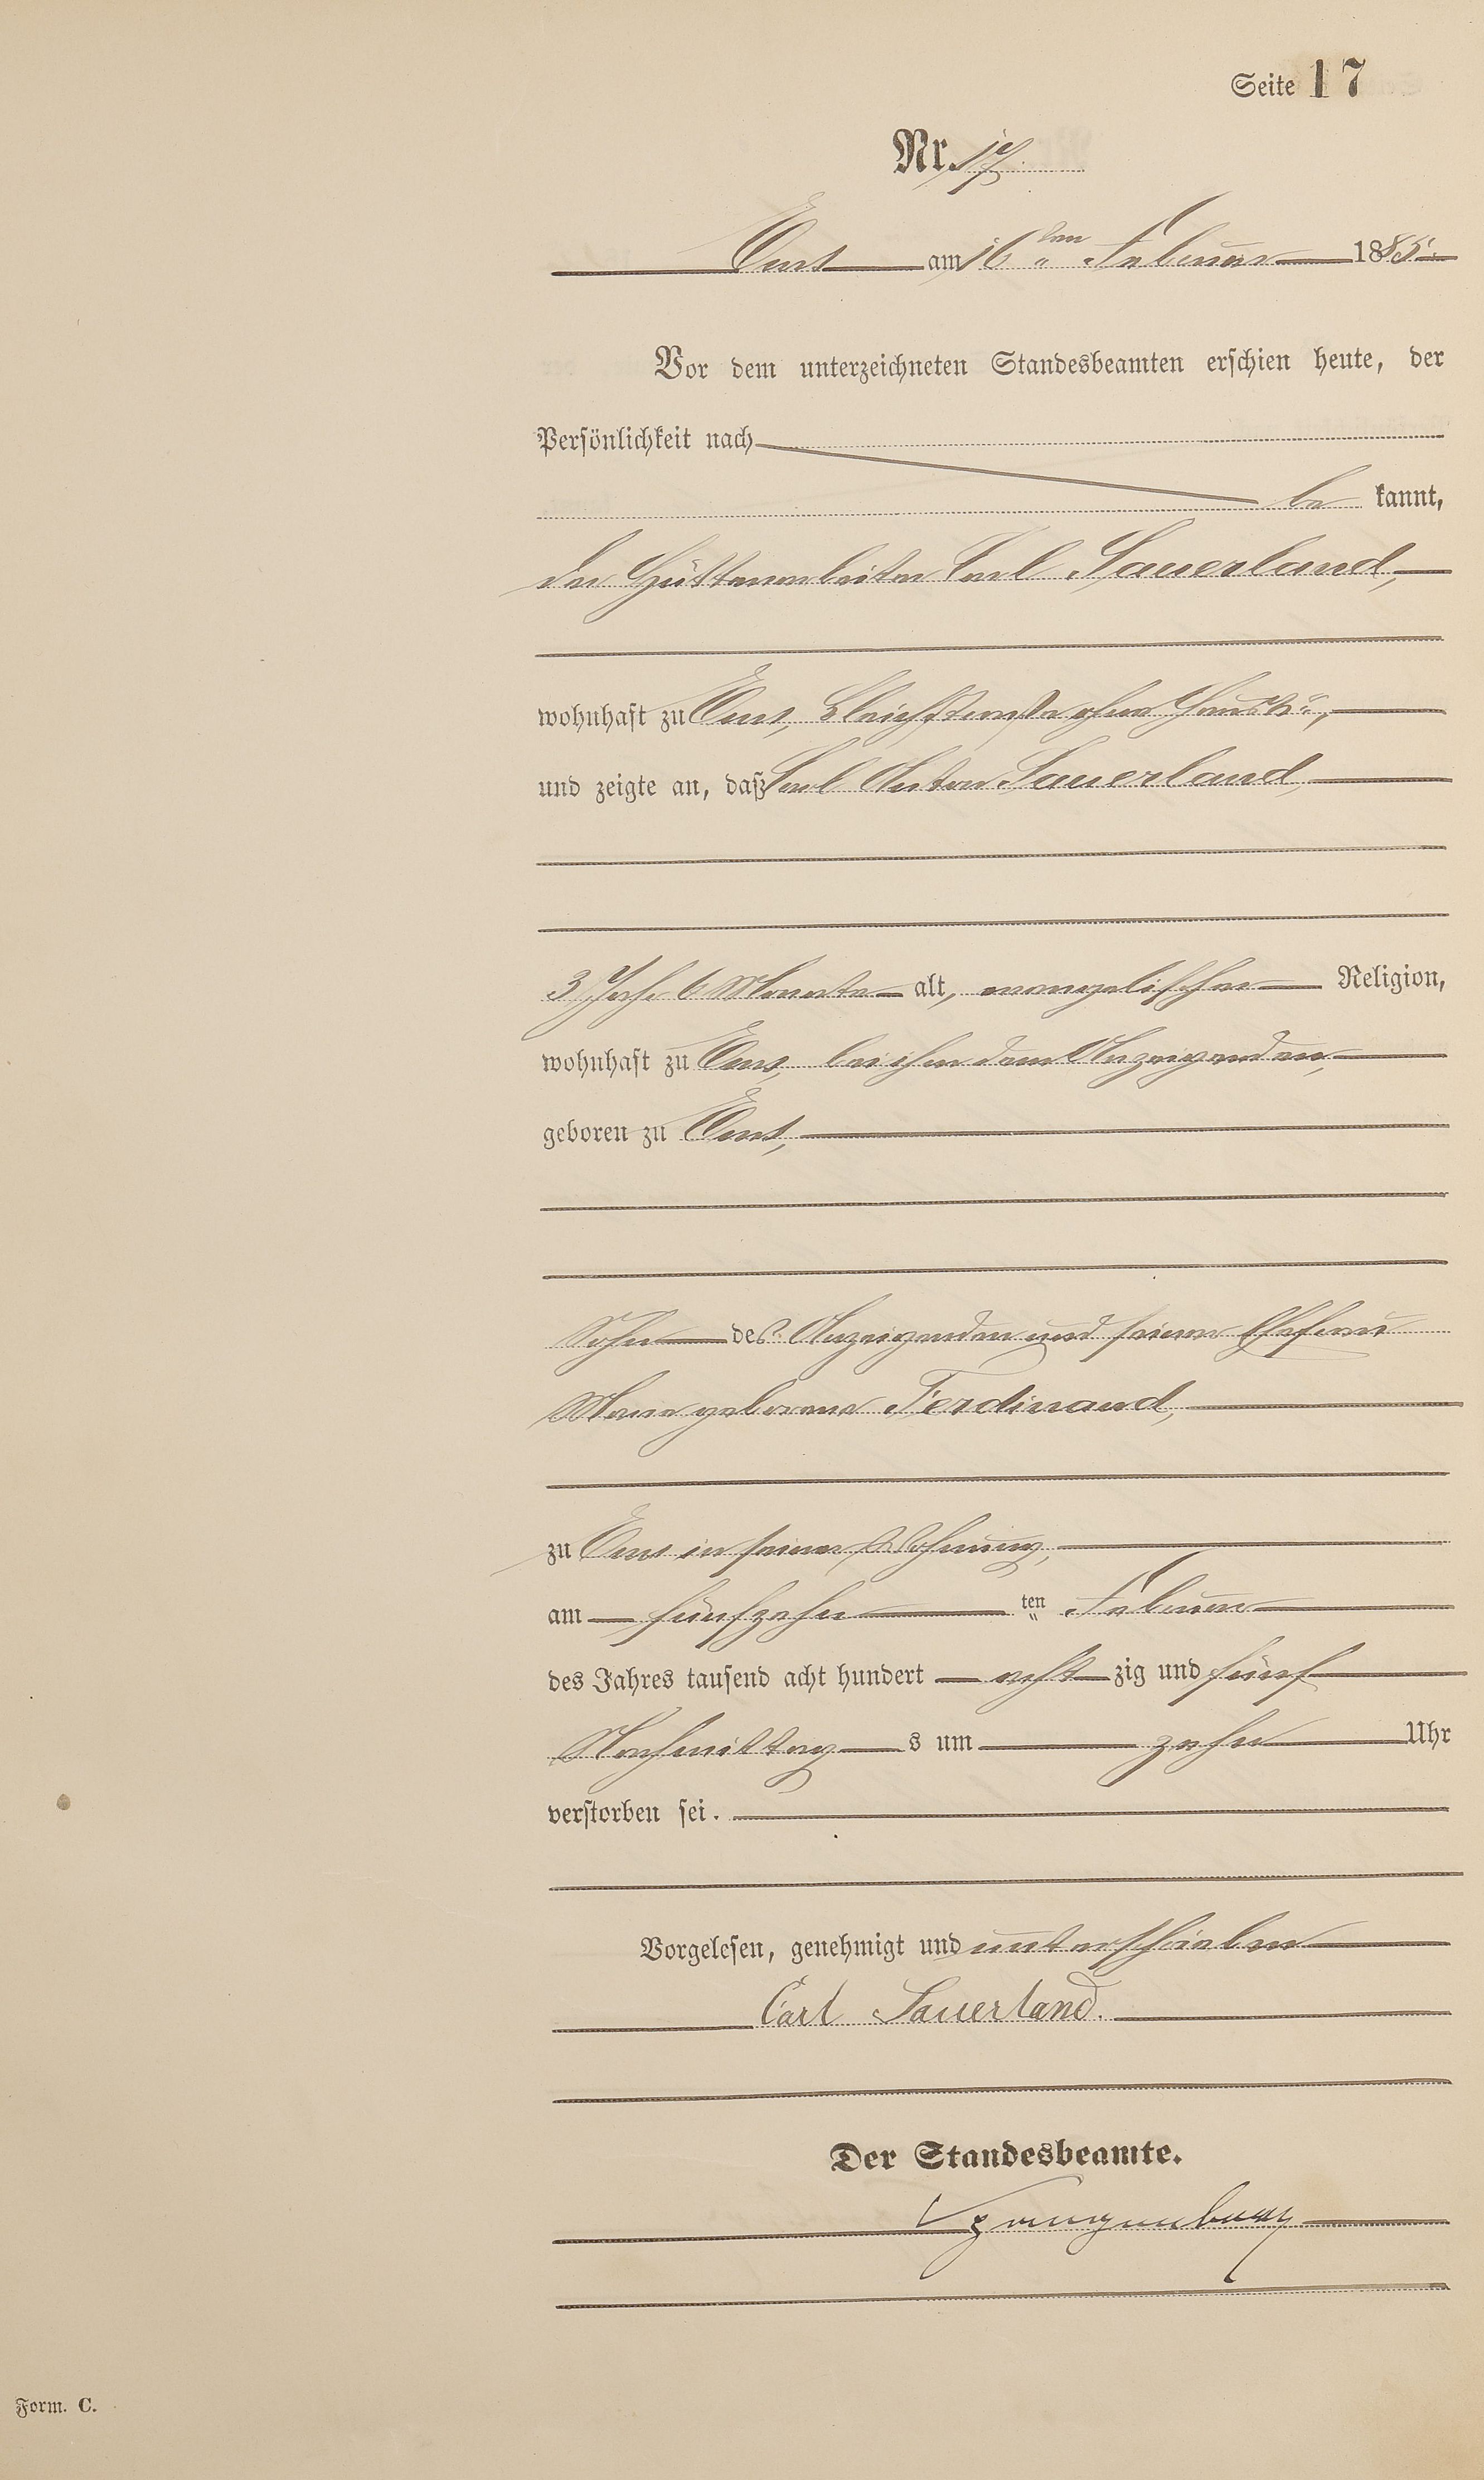 Seite 17
Nr. 17.
Ems am 16ten Februar 1885.
Vor dem unterzeichneten Standesbeamten erschien heute, der
Persönlichkeit nach
be kannt,
der Hüttenarbeiter Carl Sauerland,
wohnhaft zu Ems, Bleichstraße ohne Haus No,
und zeigte an, daß Carl Anton Sauerland,
3 Jahr 6 Monate alt, evangelischer Religion,
wohnhaft zu Ems, bei ihm dem Anzeigenden,
geboren zu Ems,
Sohn des Anzeigenden und seiner Ehefrau
Marie geborene Ferdinand,
zu Ems in seiner Wohnung,
am fünfzehn ten Februar
des Jahres tausend acht hundert acht zig und fünf
Nachmittag s um zehn Uhr
verstorben sei.
Vorgelesen, genehmigt und unterschrieben
Carl Sauerland.
Der Standesbeamte.
Form. C.